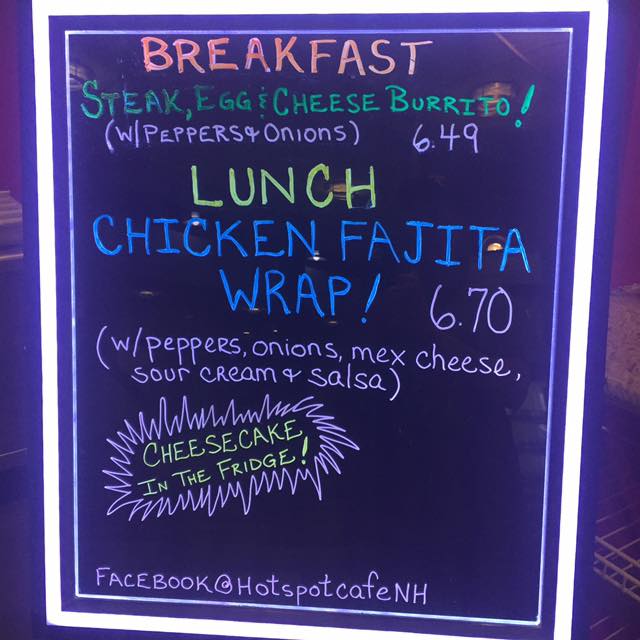 BREAKFAST
STEAK, EGG & CHEESE BURRITO!
(W/PEPPERS & ONIONS) 6.49
LUNCH
CHICKEN FAJITA
WRAP! 6.70
(w/peppers, onions, mex cheese,
sour cream & salsa)
CHEESECAKE
IN THE FRIDGE!
FACEBOOK@HotspotcafeNH